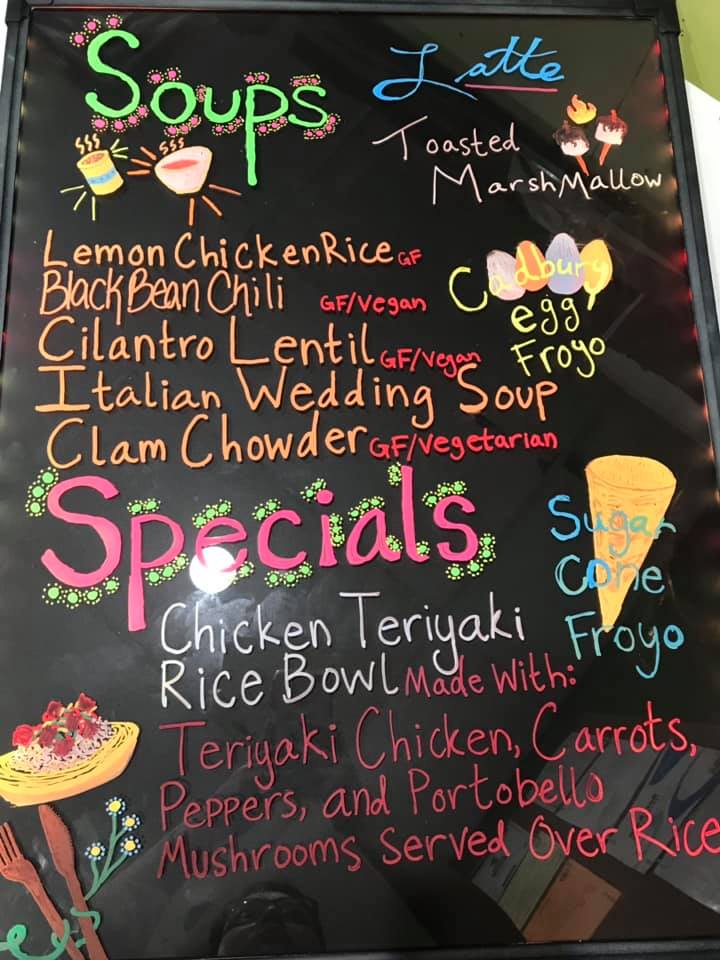 Soups
Latte
Toasted
MarshMallow
Lemon Chicken Rice GF
Black Bean Chili GF/Vegan
Cilantro Lentil GF/Vegan
Italian Wedding Soup
Clam Chowder GF/Vegetarian
Cadbury
egg
Froyo
Specials
Sugar
Cone
Froyo
Chicken Teriyaki
Rice Bowl Made With:
Teriyaki Chicken, Carrots,
Peppers, and Portobello
Mushrooms Served Over Rice